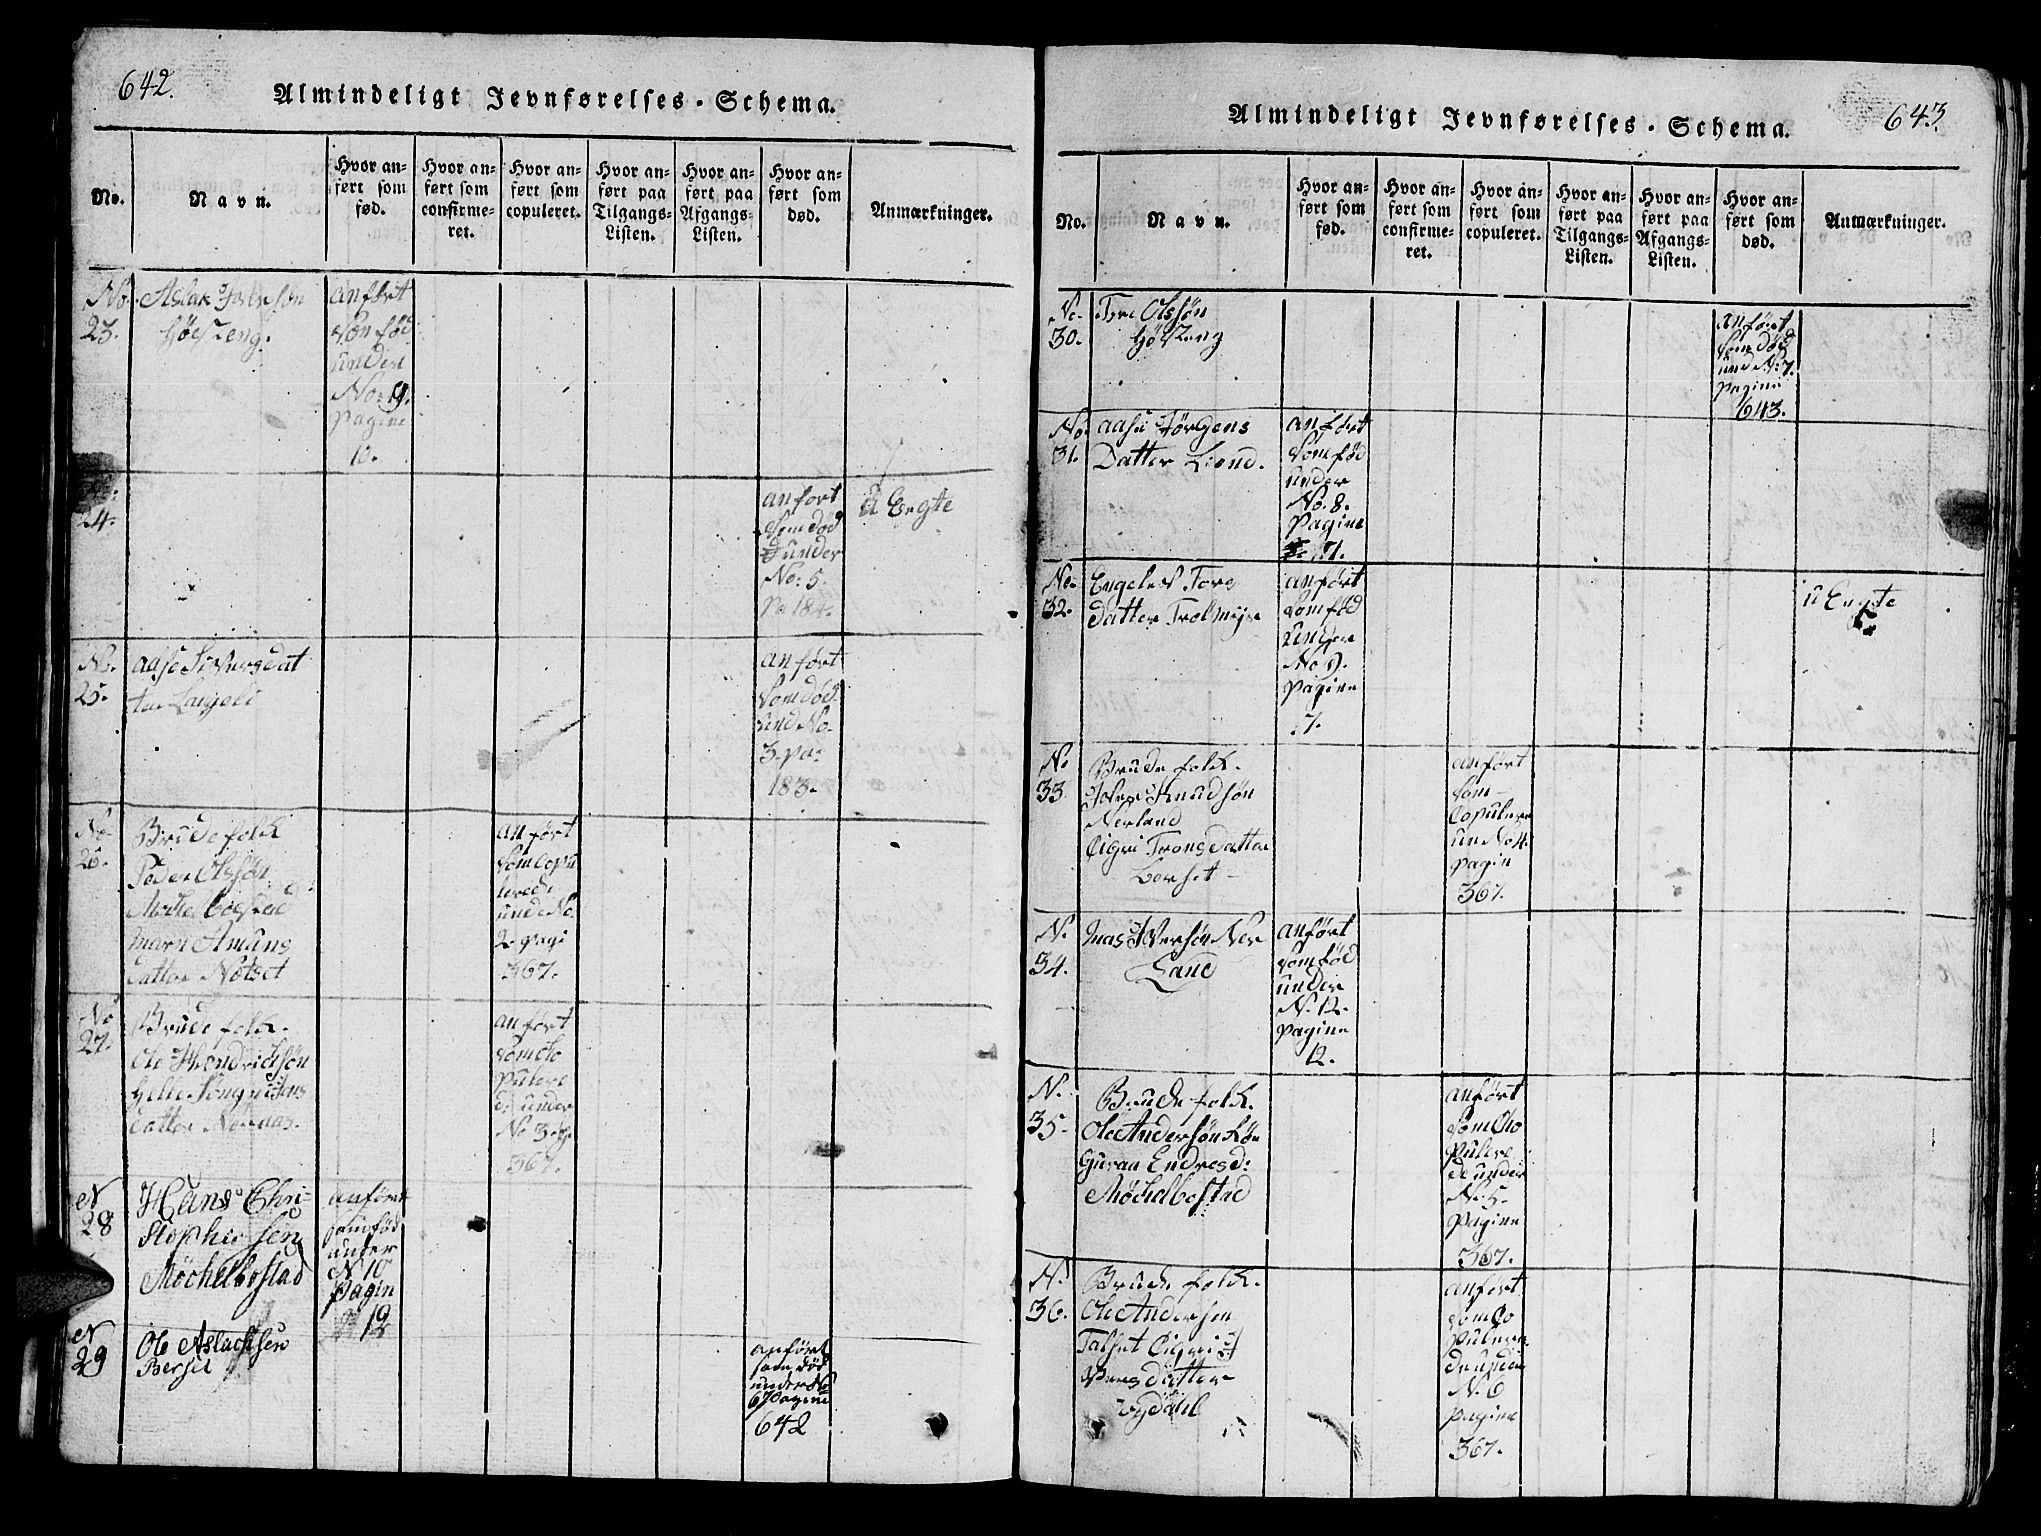 642.
Almindeligt Jevnførelses-Schema.
No.
Navn.
Hvor an-
ført som
fød.
Hvor an-
ført som
confirme-
ret.
Hvor an-
ført som
copuleret.
Hvor an-
ført paa
Tilgangs-
Listen.
Hvor an-
ført paa
Afgangs-
Listen.
Hvor an-
ført som
død.
Anmærkninger.
No.
23.
Aslak
anført
som fød
under
No: 9.
pagine
10.
24.
anført
som død
under
No: 5.
Pa 184.
u Engte
No.
25.
aase Siversdat
ter Langeli
anført
som død
und No.
3. pa:
183.
No.
26.
Brude folk
Peder Olssøn
Møchelbostad
marn Amuns
datter Notset
anført
som copu
lerede
unde No.
2. pagi
367.
No
27.
Brude folk.
Ole Hendrichsøn
datter
anført
som Co
pulere
de under
No 3.
367.
N
28
Hans Chri-
stophersen
Møchelbostad
anført
som fød
under
N 10
Pagin
12
N
29
Ole Aslachsen
Berset
anført
som død
under No
6 Pagina
642
643.
Almindeligt Jevnførelses-Schema.
No.
Navn.
Hvor an-
ført som
fød.
Hvor an-
ført som
confirme-
ret.
Hvor an-
ført som
copuleret.
Hvor an-
ført paa
Tilgangs-
Listen.
Hvor an-
ført paa
Afgangs-
Listen.
Hvor an-
ført som
død.
Anmærkninger.
No.
30.
Tore Olssøn
anført
som død
und No: 7.
pagine
643.
No.
31.
aase Jørgens
Datter Liend.
anført
som fød
under
No. 8.
pagine
71.
No.
32.
Engeled Tors
datter Trolmyr
anført
som fød
under
No 9.
pagine
7.
u Engte
No
33.
Brude folk.
Iver Knudsøn
Nerland
Sigri Tronsdatter
Berset
anført
som
Copulere
un No 4.
pagin
367.
N.
34.
mas Iversøn Ner
Land
anført
som fød
under
N. 12.
pagine
12.
N.
35.
Brude folk.
Ole Andersøn
Guran Endresd:
Møchelbostad
anført
som Cho
pulere
de under
No 5.
pagine
367.
N.
36.
Brude folk.
Ole Andersen
Talset Sigri
datter
anført
som Co
pulere
de under
N. 6
pagine
367.